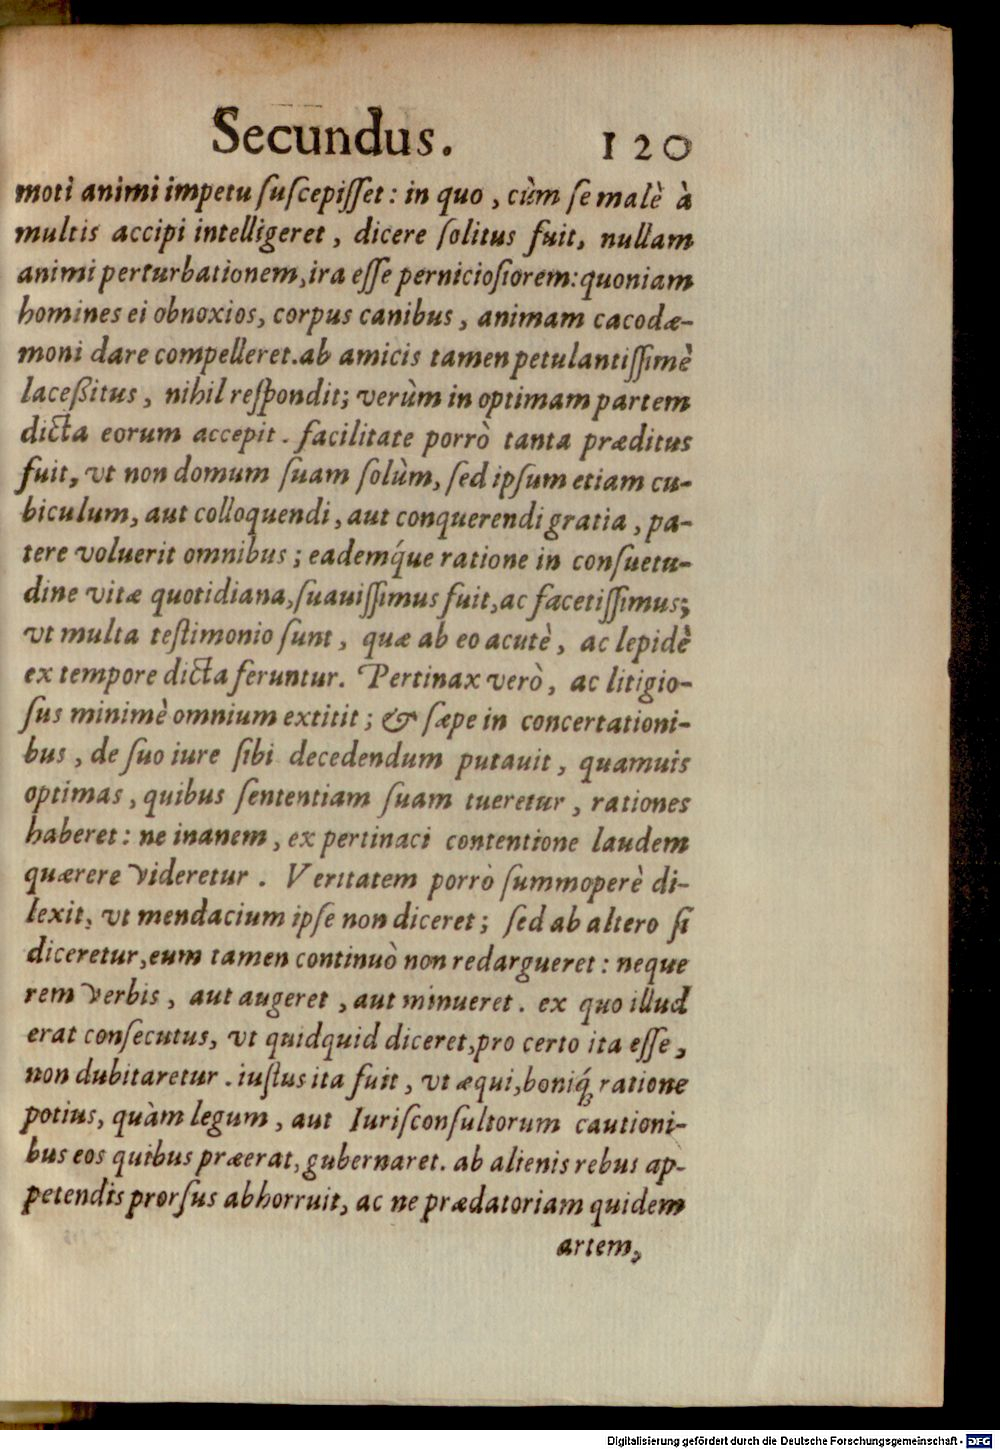 Secundus. 120
moti animi impetu suscepisset: in quo, cùm se malè à
multis accipi intelligeret, dicere solitus fuit, nullam
animi perturbationem, ira esse perniciosiorem: quoniam
homines ei obnoxios, corpus canibus, animam cacodæ-
moni dare compelleret. ab amicis tamen petulantissimè
laceßitus, nihil respondit; verùm in optimam partem
dicta eorum accepit. facilitate porrò tanta præditus
fuit, vt non domum suam solùm, sed ipsum etiam cu-
biculum, aut colloquendi, aut conquerendi gratia, pa-
tere voluerit omnibus; eademq́ue ratione in consuetu-
dine vitæ quotidiana, suauissimus fuit, ac facetissimus;
vt multa testimonio sunt, quæ ab eo acutè, ac lepidè
ex tempore dicta feruntur. Pertinax verò, ac litigio-
sus minimè omnium extitit; & sæpe in concertationi-
bus, de suo iure sibi decedendum putauit, quamuis
optimas, quibus sententiam suam tueretur, rationes
haberet: ne inanem, ex pertinaci contentione laudem
quærere videretur. Veritatem porrò summoperè di-
lexit, vt mendacium ipse non diceret; sed ab altero si
diceretur, eum tamen continuò non redargueret: neque
rem verbis, aut augeret, aut minueret. ex quo illud
erat consecutus, vt quidquid diceret, pro certo ita esse,
non dubitaretur. iustus ita fuit, vt æqui, boniq́; ratione
potius, quàm legum, aut Iurisconsultorum cautioni-
bus eos quibus præerat, gubernaret. ab alienis rebus ap-
petendis prorsus abhorruit, ac ne prædatoriam quidem
artem,
Digitalisierung gefördert durch die Deutsche Forschungsgemeinschaft - DFG